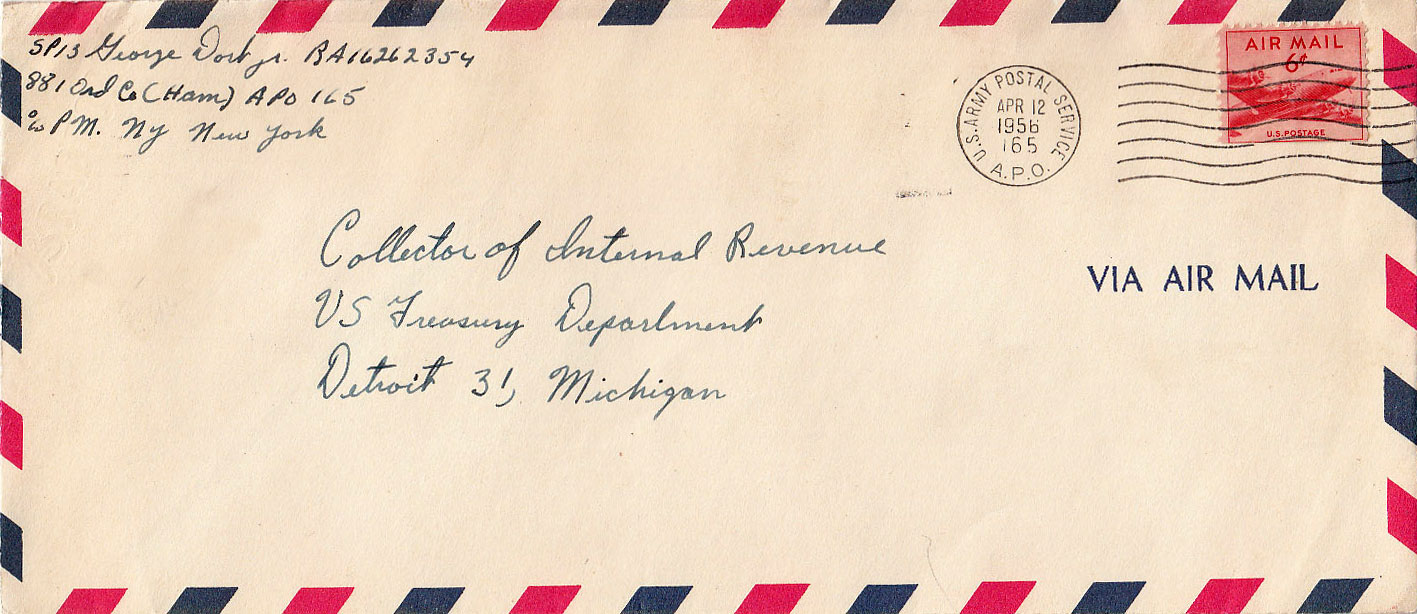 SP13 George Dort jr. RA16262354
881 Ord Co (Ham) APO 165
c/o PM. Ny New York
U.S. ARMY POSTAL SERVICE
APR 12
1956
165
A.P.O.
AIR MAIL
6¢
U.S. POSTAGE
Collector of Internal Revenue
US Treasury Department
Detroit 31, Michigan
VIA AIR MAIL